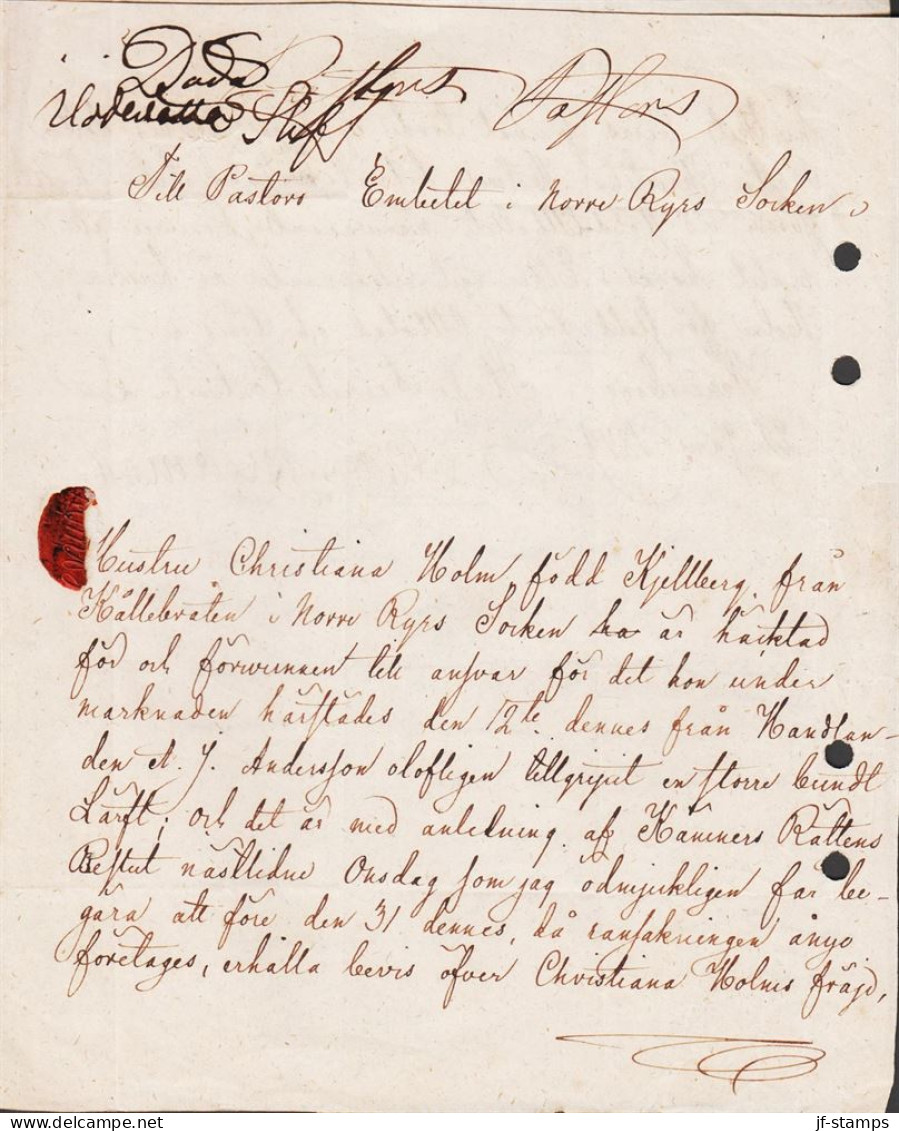 Till Pastors Embetet i Norre Ryrs Socken
Hustru Christiana Holm, född Kjellberg, från
Kållebråten i Norre Ryrs Socken ha är häcktad
för och förwunnen till ansvar för det hon under
marknaden härstädes den 12te dennes från Handlan-
den A. J. Andersson olofligen tillgripit en större bundt
Lärft; och det är med anledning af Kämners Rättens
Beslut nästlidne Onsdag som jag ödmjukligen får be-
gära att före den 31 dennes, då ransakningen ånyo
företages, erhålla bevis öfver Christiana Holms fräjd,
jf-stamps